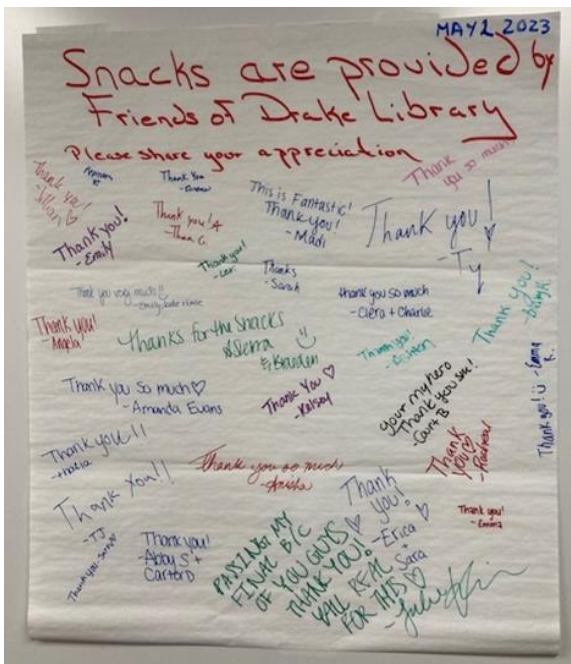 MAY 2 2023
Snacks are provided by
Friends of Drake Library
Please share your appreciation
Thank you!
-Jillian
Thank You
Thank you so much!
This is Fantastic!
Thank you!
-Madi
Thank you!
-Ty
Thank you!
-Emily
Thank you!
Thank you!
-Lexi
Thanks
-Sarah
Thank you very much!!
thank you so much
-Ciera + Charlie
Thank you!
Thank you!
Angela!
Thanks for the Snacks
Sierra
& Branden
Thank you!
-Ashton
Thank you so much
-Amanda Evans
Thank You
-Kelsey
your my hero
Thank you sm!
-Court B
Thank you! ü -Emma
Thank
you
Thank you!!
-thalia
Thank you so much
-Anisha
Thank You!!
-TJ
Thank
you!
-Erica
+
Sara
Thank you!
-Emma
Thank you
Thank you!
-Abby S +
Carter D
PASSING MY
FINAL B/C
OF YOU GUYS
THANK YOU!
YALL REAL
FOR THIS